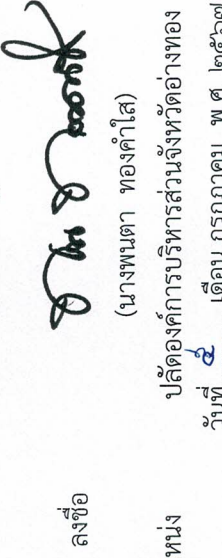 ลงชื่อ
(นางพนตา ทองคำใส)
หน่ง ปลัดองค์การบริหารส่วนจังหวัดอ่างทอง
วันที่ ๕ เดือน กรกฎาคม พ.ศ. ๒๕๖๗